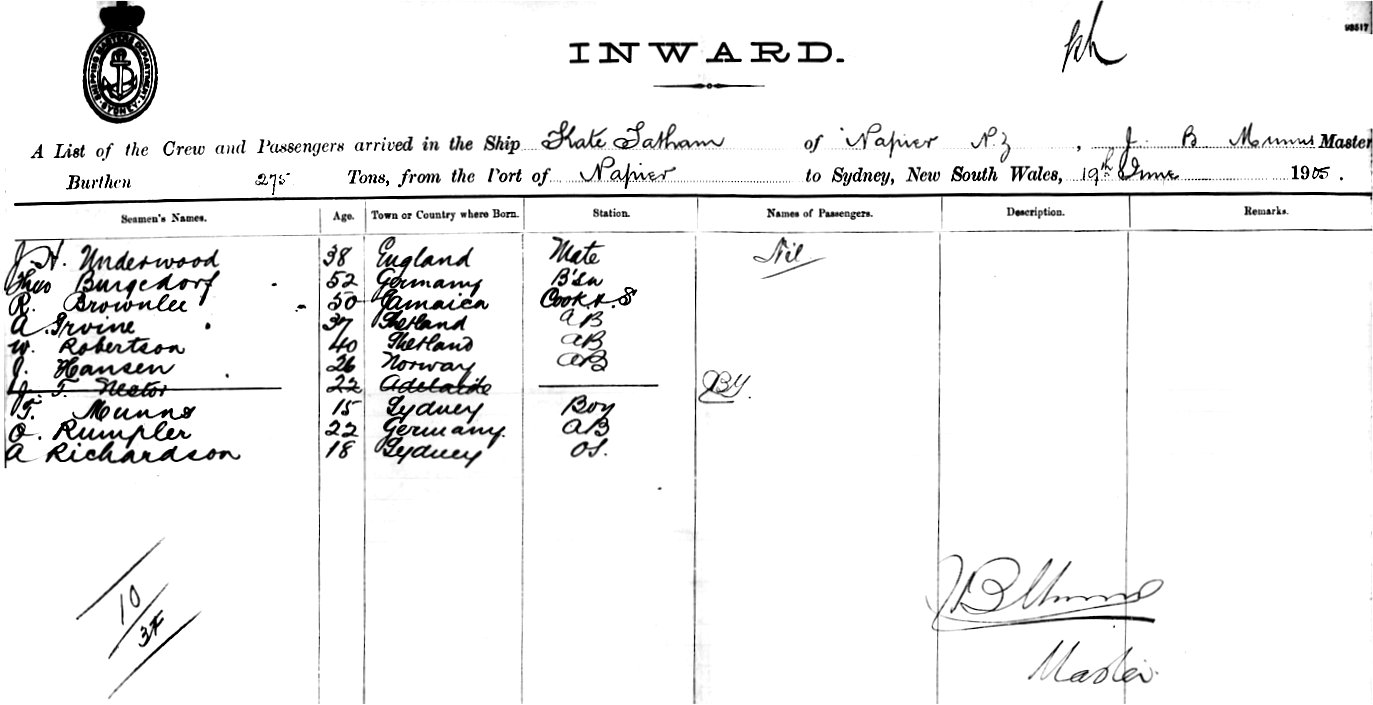 SHIPPING MASTERS DEPARTMENT
SYDNEY
INWARD.
A List of the Crew and Passengers arrived in the Ship Kate Tatham of Napier N.Z, J B Munns Master
Burthen 275 Tons, from the Port of Napier to Sydney, New South Wales, 19th June 1905.
Seamen's Names. Age. Town or Country where Born. Station. Names of Passengers. Description. Remarks.
J. H. Underwood 38 England Mate Nil
Theo Burgedorf 52 Germany B'sn
R. Brownlee 50 Jamaica Cook & S
A. Irvine 37 Shetland AB
W. Robertson 40 Shetland AB
J. Hansen 26 Norway AB
J. T. Nestor 22 Adelaide
T. Munns 15 Sydney Boy
O. Rumpler 22 Germany. AB
A Richardson 18 Sydney OS.
10
JB Munns
Master